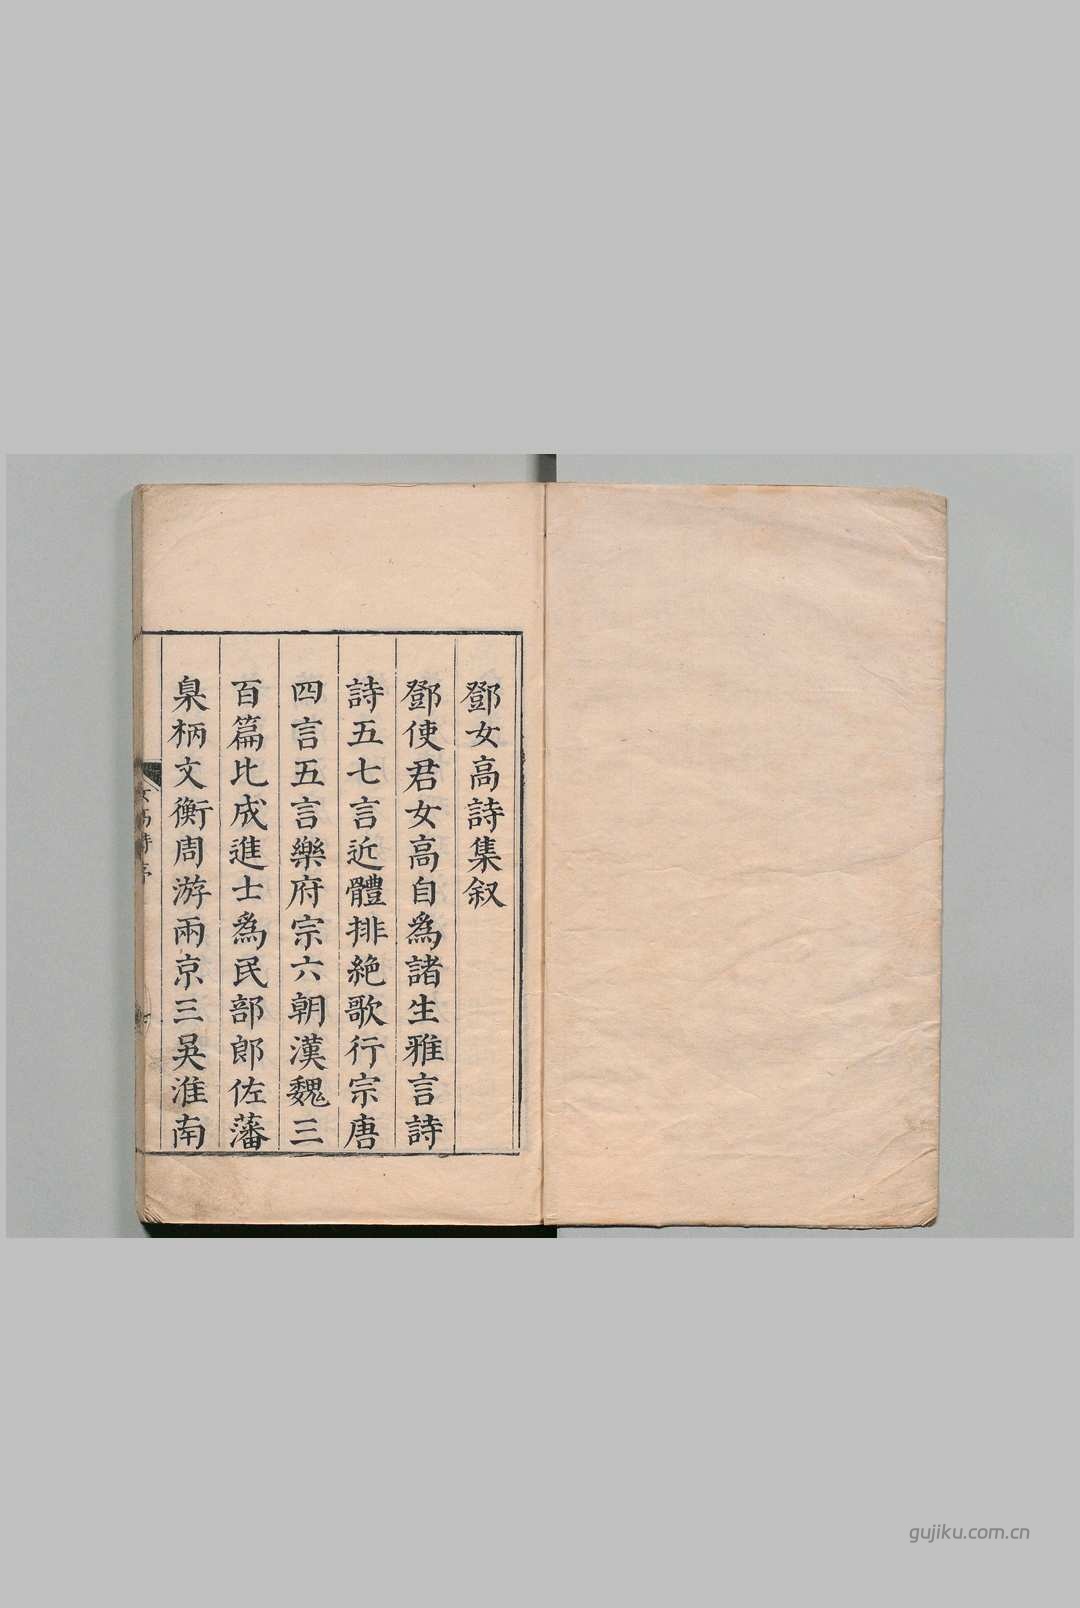 鄧女高詩集叙
鄧使君女高自爲諸生雅言詩
詩五七言近體排絶歌行宗唐
四言五言樂府宗六朝漢魏三
百篇比成進士爲民部郎佐藩
臬柄文衡周游兩京三吳淮南
女高詩序
gujiku.com.cn